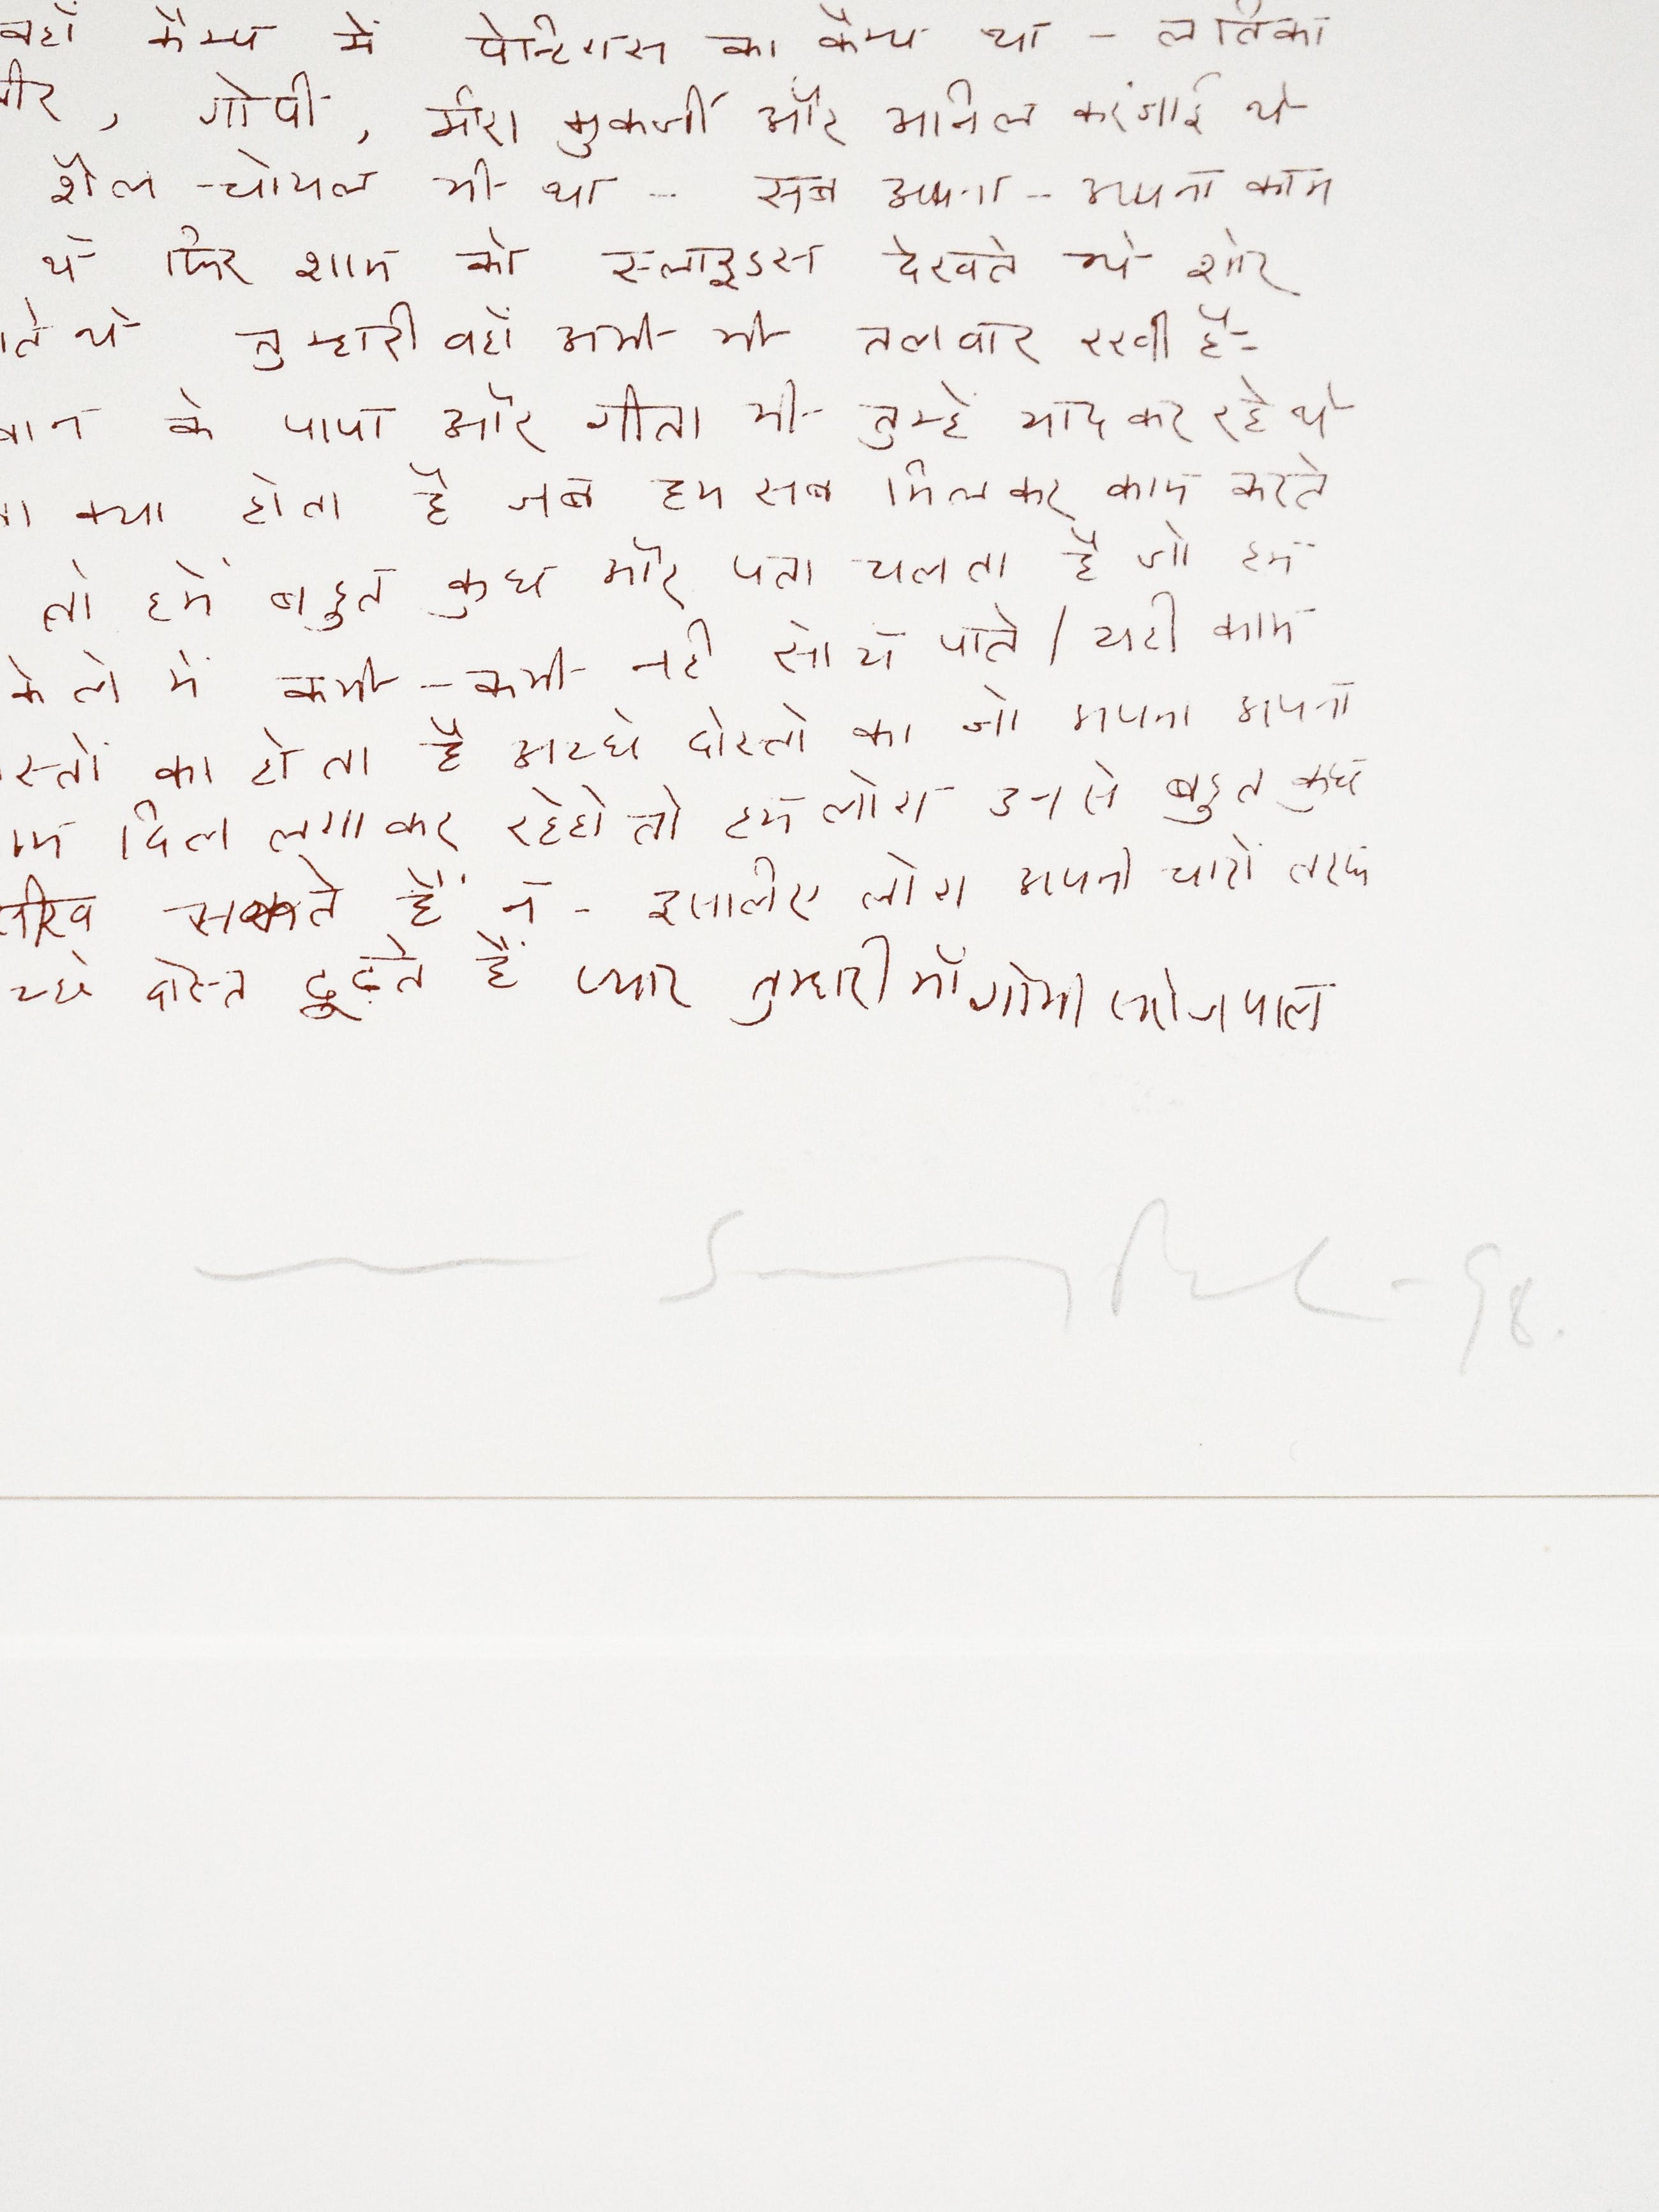 वहाँ कैम्प में पेन्टिगस का कैम्प था - लतिका
, गोपी, मीरा मुकर्जी और अनिल करंजाई थे
शैल चोयल भी था -- सब अपना - अपना काम
थे फिर शाम को स्लाइडस देखते थे शोर
थे तुम्हारी वहाँ अभी भी तलवार रखी है -
के पापा और गीता भी तुम्हे याद कर रहे थे
क्या होता है जब हम सब मिलकर काम करते
तो हमें बहुत कुछ और पता चलता है जो हम
में कभी - कभी नही सोच पाते / यही काम
का होता है अच्छे दोस्तो का जो अपना अपना
दिल लगाकर रहेहो तो हम लोग उनसे बहुत कुछ
सकते हैं न - इसलिए लोग अपनी चारों तरफ
दोस्त ढूढ़ते हैं प्यार तुम्हारी माँ गोगी सरोजपाल
98.